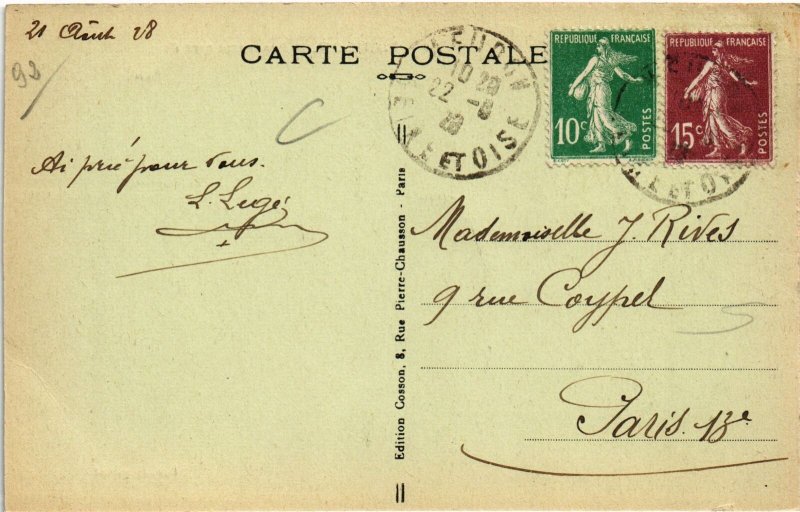 21 Août 28
98
CARTE POSTALE
10 20
22 - 8
28
SEINE ET OISE
REPUBLIQUE FRANÇAISE
10c
POSTES
REPUBLIQUE FRANÇAISE
15c
POSTES
ET OISE
Ai prié pour vous.
L. Legé
Mademoiselle J. Rives
9 rue Coypel
Paris. 13e
Edition Cosson, 8, Rue Pierre-Chausson - Paris